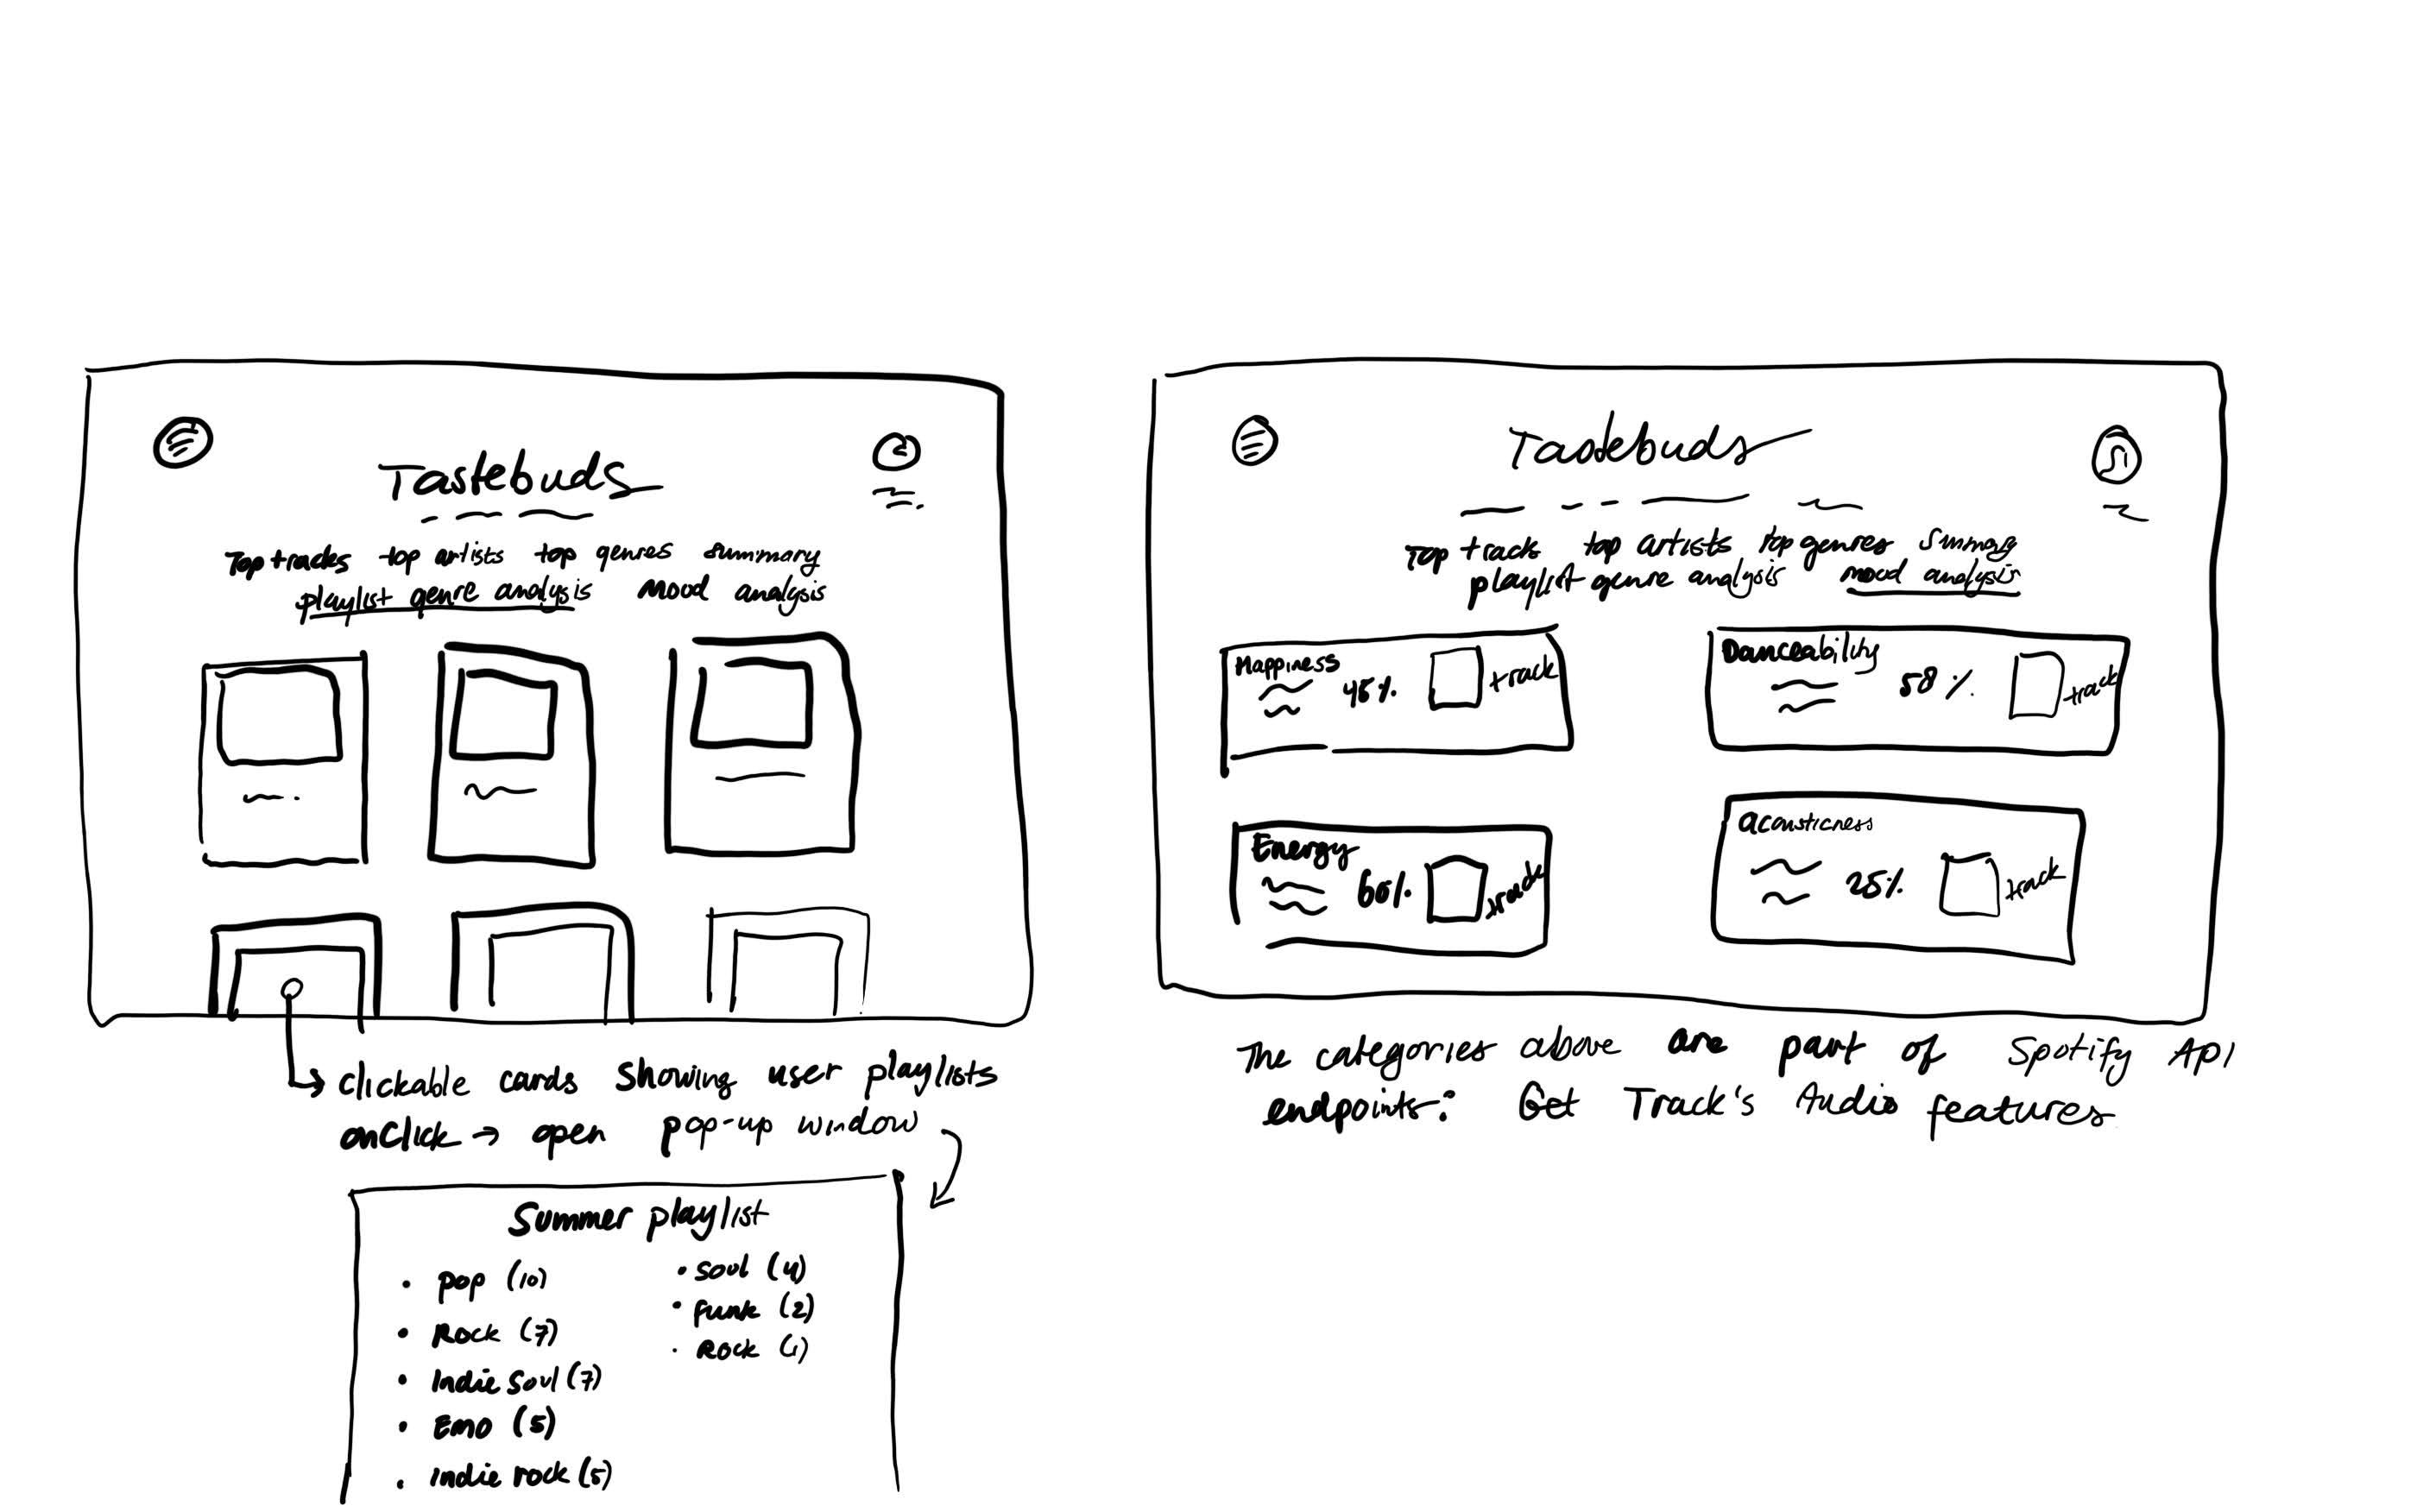 Tastebuds
Top tracks top artists top genres summary
playlist genre analysis Mood analysis
clickable cards showing user playlists
onClick → open pop-up window
Summer playlist
• Pop (10)
• Rock (7)
• Indie Soul (7)
• Emo (5)
• Indie rock (5)
• Soul (4)
• Funk (2)
• Rock (1)
Tastebuds
Top track top artists top genres Summary
playlist genre analysis mood analysis
Happiness
45% track
Danceability
58% track
Energy
60% track
acousticness
25% track
The categories above are part of Spotify API
endpoints: Get Track's Audio features